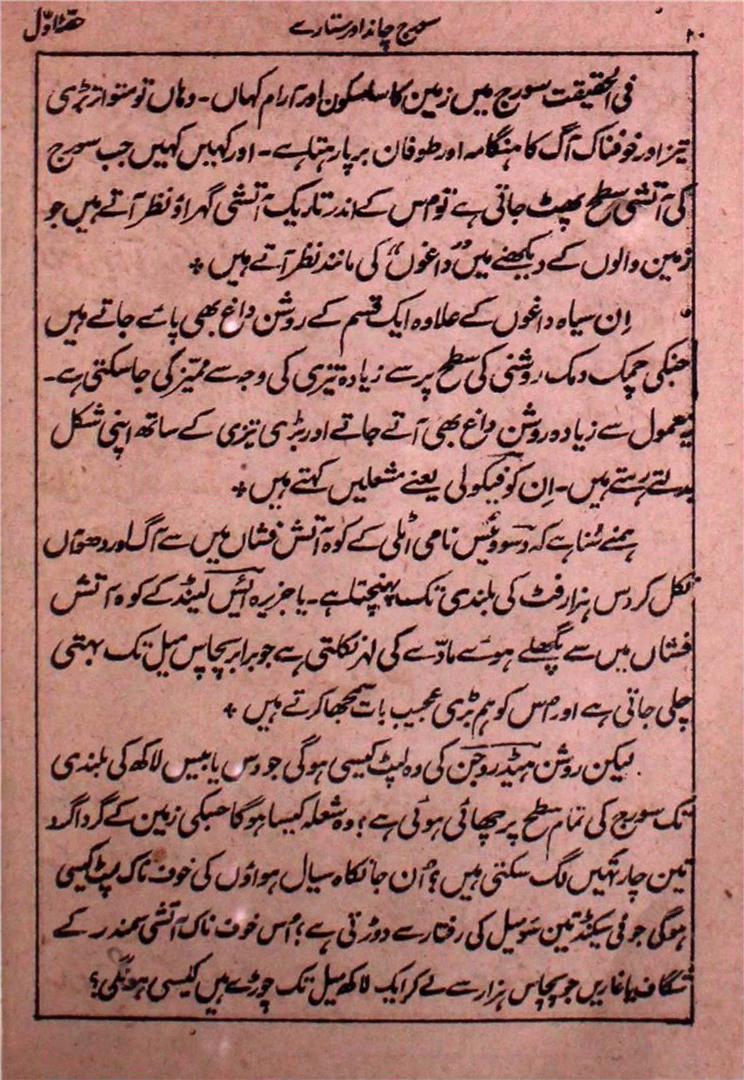 ۲۰ سورج چاند اور ستارے حصّہ اوّل
فی الحقیقت سورج میں زمین کا سا سکون اور آرام کہاں۔ وہاں تو متواتر بڑی
تیز اور خوفناک آگ کا ہنگامہ اور طوفان برپا رہتا ہے۔ اور کہیں کہیں جب سورج
کی آتشی سطح پھٹ جاتی ہے تو اُس کے اندر تاریک آتشی گہراؤ نظر آتے ہیں جو
زمین والوں کے دیکھنے میں ”داغوں“ کی مانند نظر آتے ہیں +
اِن سیاہ داغوں کے علاوہ ایک قسم کے روشن داغ بھی پائے جاتے ہیں
جنکی چمک دمک روشنی کی سطح پر سے زیادہ تیزی کی وجہ سے ممیّز کی جا سکتی ہے۔
یہ معمول سے زیادہ روشن داغ بھی آتے جاتے اور بڑی تیزی کے ساتھ اپنی شکل
بدلتے رہتے ہیں۔ اِن کو فیکولی یعنے مشعلیں کہتے ہیں +
ہمنے سُنا ہے کہ وسوویئس نامی اٹلی کے کوہ آتش فشاں میں سے آگ اور دھوآں
نکل کر دس ہزار فٹ کی بلندی تک پہنچتا ہے۔ یا جزیرہ آئیس لینڈ کے کوہ آتش
فشاں میں سے پگھلے ہوئے مادّے کی لہر نکلتی ہے جو برابر پچاس میل تک بہتی
چلی جاتی ہے اور اُس کو ہم بڑی عجیب بات سمجھا کرتے ہیں +
لیکن روشن ہیڈروجن کی وہ لپٹ کیسی ہوگی جو دس یا بیس لاکھ کی بلندی
تک سورج کی تمام سطح پر چھائی ہوئی ہے؛ وہ شعلہ کیسا ہوگا جسکی زمین کے گرداگرد
تین چار تہیں لگ سکتی ہیں؟ اُن جانکاہ سیال ہواؤں کی خوف ناک لپٹ کیسی
ہوگی جو فی سیکنڈ تین سو میل کی رفتار سے دوڑتی ہے؛ اُس خوف ناک آتشی سمندر کے
شگاف یا غاریں جو پچاس ہزار سے لے کر ایک لاکھ میل تک چوڑے ہیں کیسی ہونگی؟